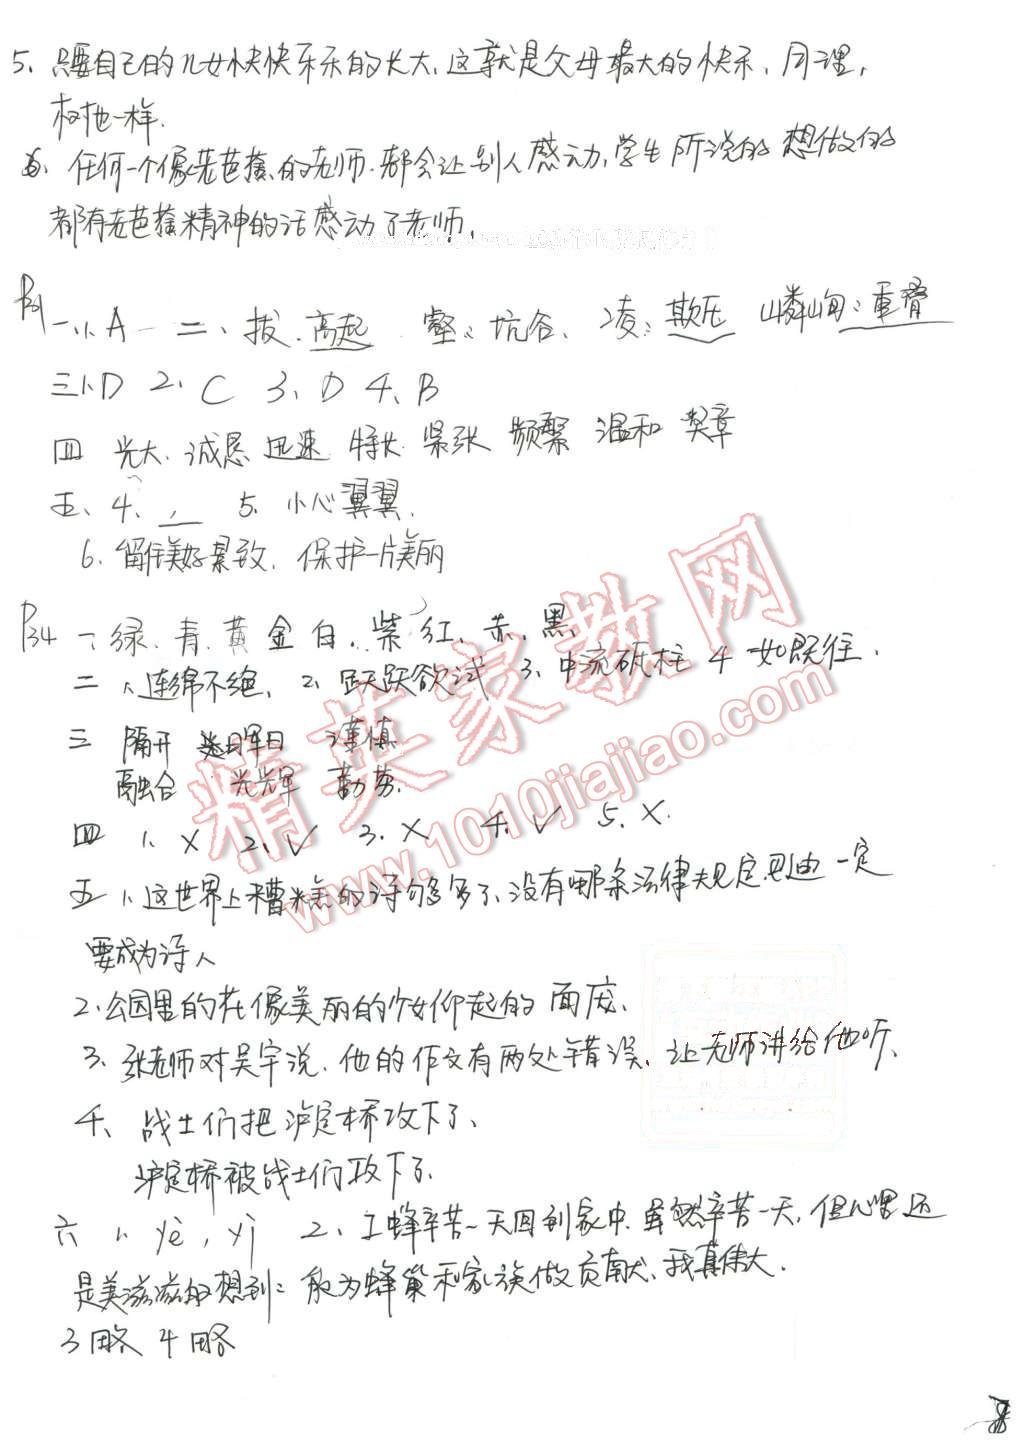 5、只要自己的儿女快快乐乐的长大、这就是父母最大的快乐、同理,
树也一样.
6、任何一个像老芭蕉的老师.都会让别人感动,学生所说的想做的
都有老芭蕉精神的话感动了老师.
P31 一、1、A 二、拔:高起 壑:坑谷、凌:欺压 嶙峋:重叠
三1、D 2、C 3、D 4、B
四 光大、诚恳 迅速 特长 紧张 频繁 温和
五、4、, 5、小心翼翼.
6、留住美好景致、保护一片美丽
P34 一、绿、青、黄 金 白、紫、红、赤、黑
二 1、连绵不绝、2、跃跃欲试 3、中流砥柱 4 一如既往.
三 隔开 谨慎
融合 光辉 勤劳.
四 1、× 2、√ 3、× 4、√ 5、×.
五 1、这世界上糟糕的诗够多了、没有哪条法律规定 一定
要成为诗人
2、公园里的花像美丽的少女仰起的面庞、
3、张老师对吴宇说、他的作文有两处错误、让老师讲给他听、
4、战士们把泸定桥攻下了、
泸定桥被战士们攻下了.
六 1、yè, yì 2、工蜂辛苦一天回到家中.虽然辛苦一天,但心里还
是美滋滋的想到:能为蜂巢和家族做贡献、我真伟大.
3略 4略
精英家教网
www.1010jiajiao.com